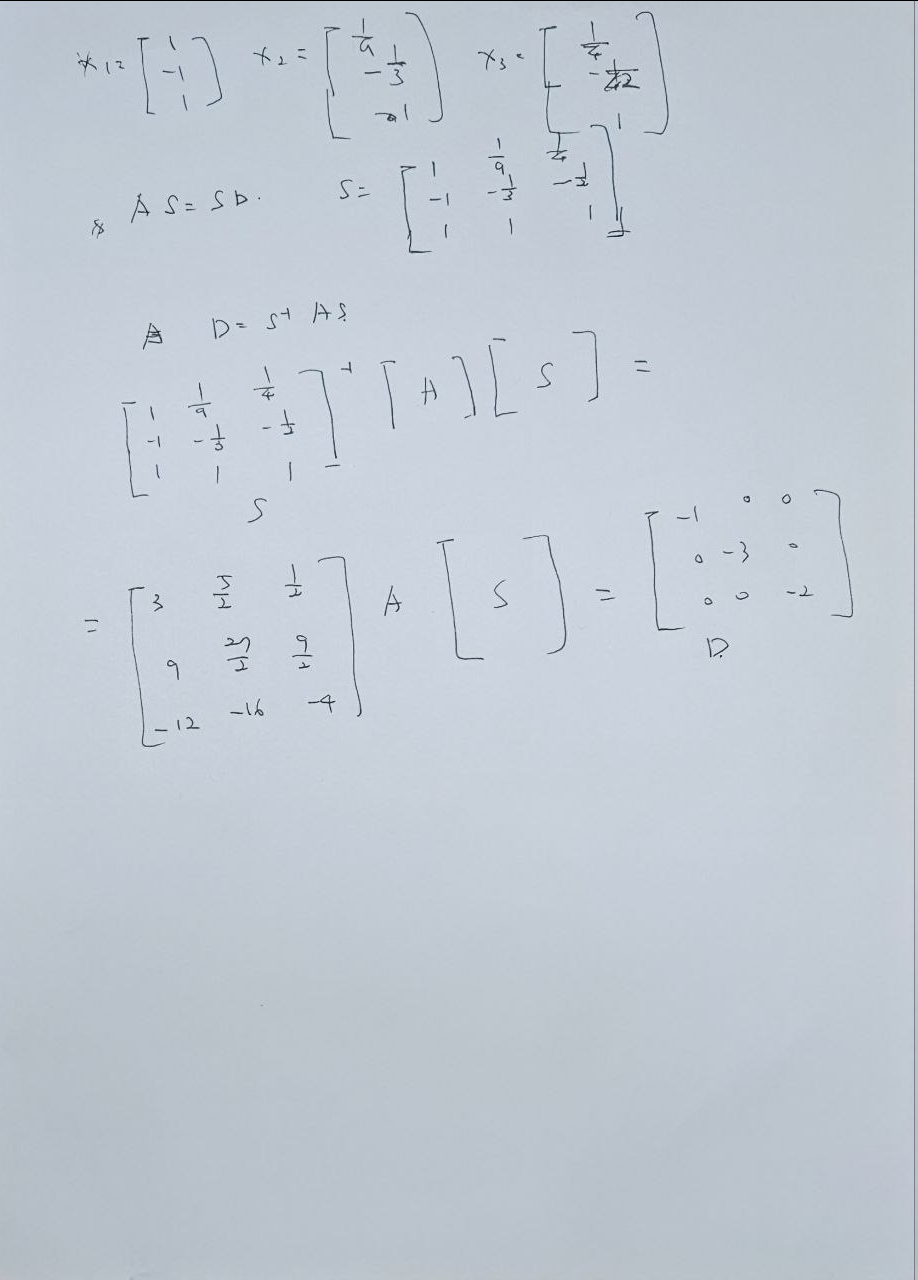 x₁ = [1 -1 1] x₂ = [1/9 -1/3 1] x₃ = [1/4 -1/2 1]
AS = SD. S = [1 1/9 1/4
-1 -1/3 -1/2
1 1 1]
D = S⁻¹ AS
[1 1/9 1/4
-1 -1/3 -1/2
1 1 1]⁻¹ [A] [S] =
S
= [3 5/2 1/2
9 27/2 9/2
-12 -16 -4] A [S] = [-1 0 0
0 -3 0
0 0 -2]
D.